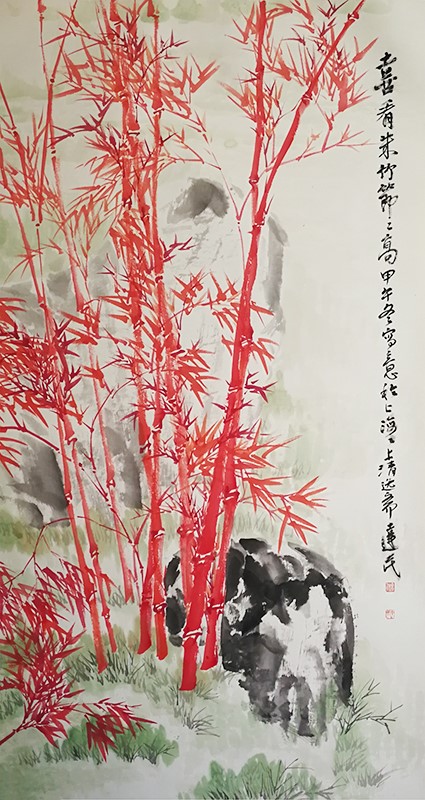 喜看朱竹節〻高甲午冬寫意於上海上清逸